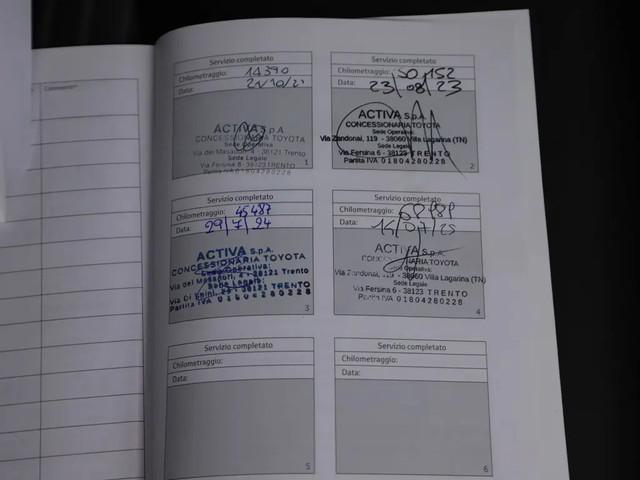 Servizio completato
Chilometraggio: 14390
Data:
ACTIVA S.p.A
CONCESSIONARIA TOYOTA
Sede Operativa
Via dei Masadori, - 38121 Trento
Sede Legale
Via Fersina 6 - 38123 TRENTO
1
Servizio completato
Chilometraggio: 50.152
Data: 23/08/23
ACTIVA S.p.A
CONCESSIONARIA TOYOTA
Sede Operativa:
Via Zandonai, 119 - 38060 Villa Lagarina (TN)
Sede Legale
Via Fersina 6 - 38123 TRENTO
Partita IVA 01804280228
2
Servizio completato
Chilometraggio: 45487
Data: 29/7/24
ACTIVA S.p.A.
CONCESSIONARIA TOYOTA
Sede Operativa:
38121 Trento
Sede Legale:
38121 TRENTO
Partita IVA 01804280228
3
Servizio completato
Chilometraggio:
Data: 14/07/25
ACTIVA S.p.A.
TOYOTA
Sede Operativa:
Via Zandonai, 119 - 38060 Villa Lagarina (TN)
Sede Legale
Via Fersina 6 - 38123 TRENTO
Partita IVA 01804280228
4
Servizio completato
Chilometraggio:
Data:
5
Servizio completato
Chilometraggio:
Data:
6